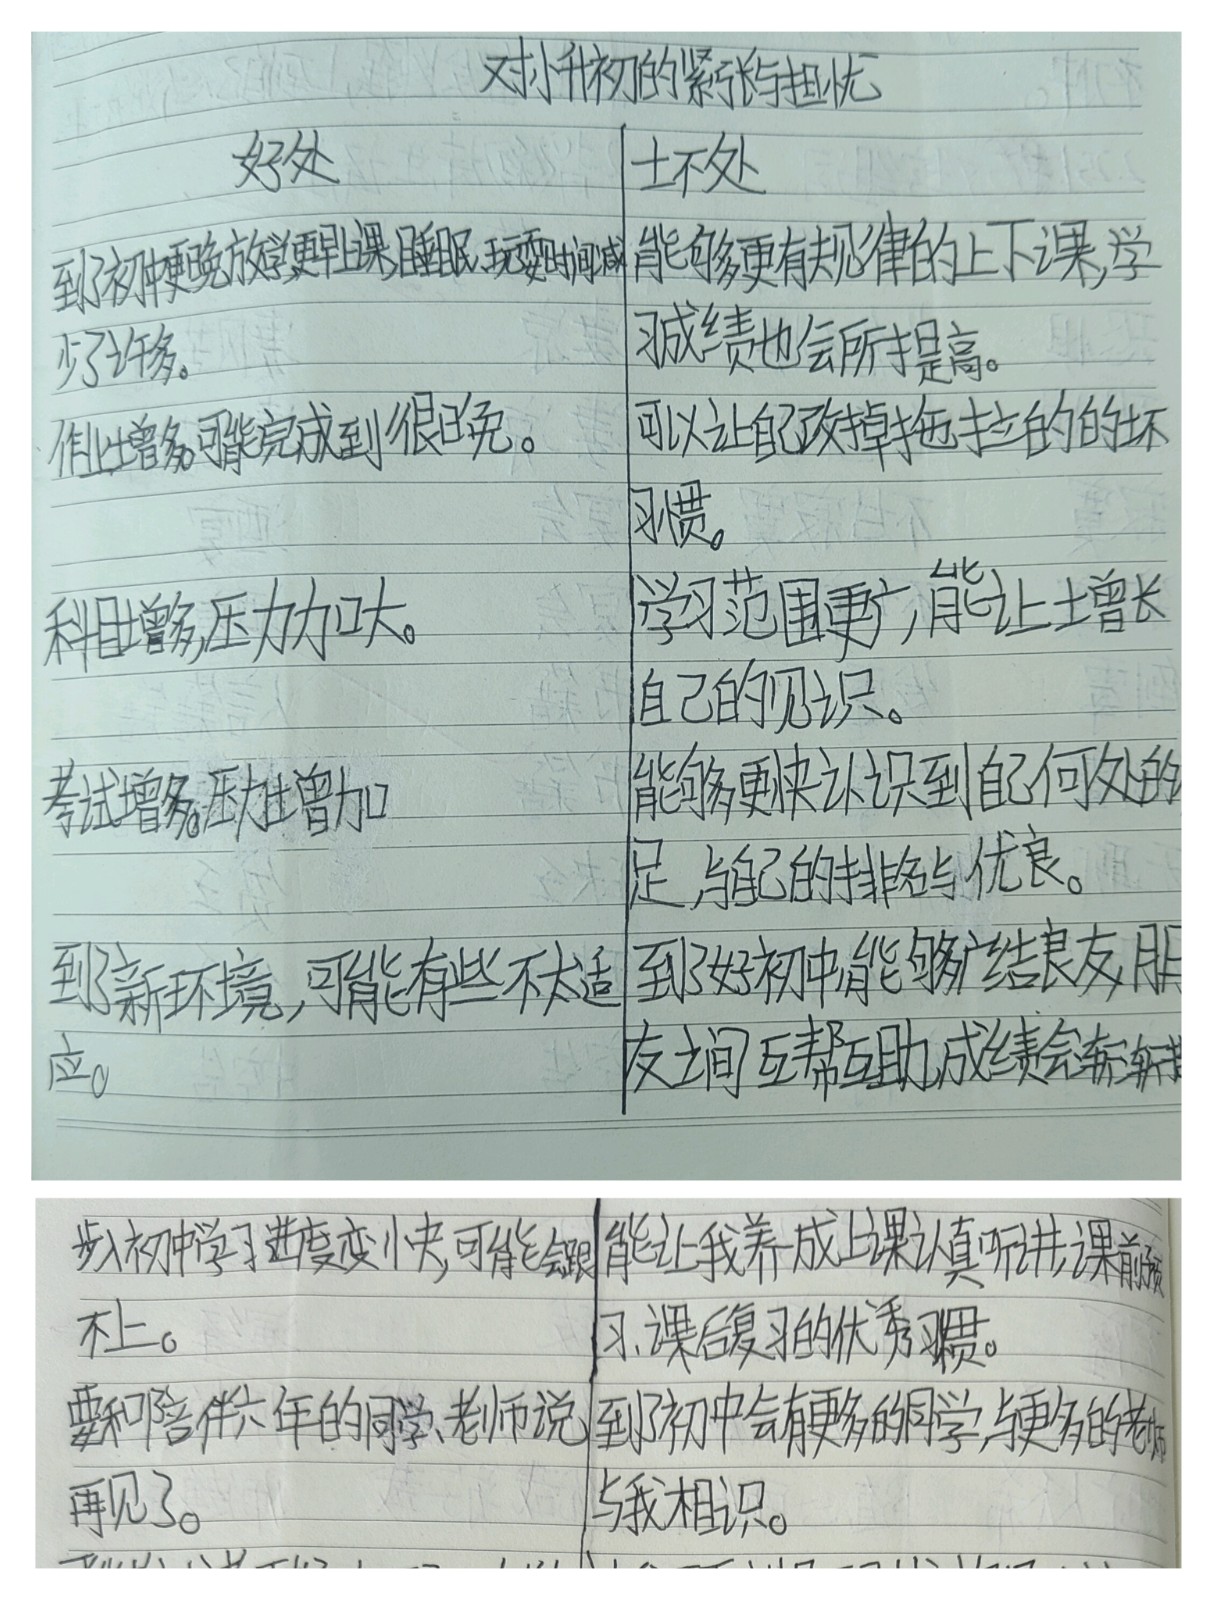 对小升初的紧张与担忧
好处
坏处
到了初中更晚放学,更早上课,睡眠、玩耍时间减
少了许多。
能够更有规律的上下课,学
习成绩也会所提高。
作业增多。可能完成到很晚。
可以让自己改掉拖拉的的坏
习惯。
科目增多,压力加大。
学习范围更广,能让增长
自己的见识。
考试增多。压力增加
能够更快认识到自己何处的
足,与自己的排名与优良。
到了新环境,可能有些不太适
应。
到了好初中,能够广结良友,朋
友之间互帮互助,成绩会渐渐
步入初中学习进度变快,可能会跟
不上。
能让我养成上课认真听讲,课前预
习、课后复习的优秀习惯。
要和陪伴六年的同学、老师说
再见了。
到了初中会有更多的同学,与更多的老师
与我相识。